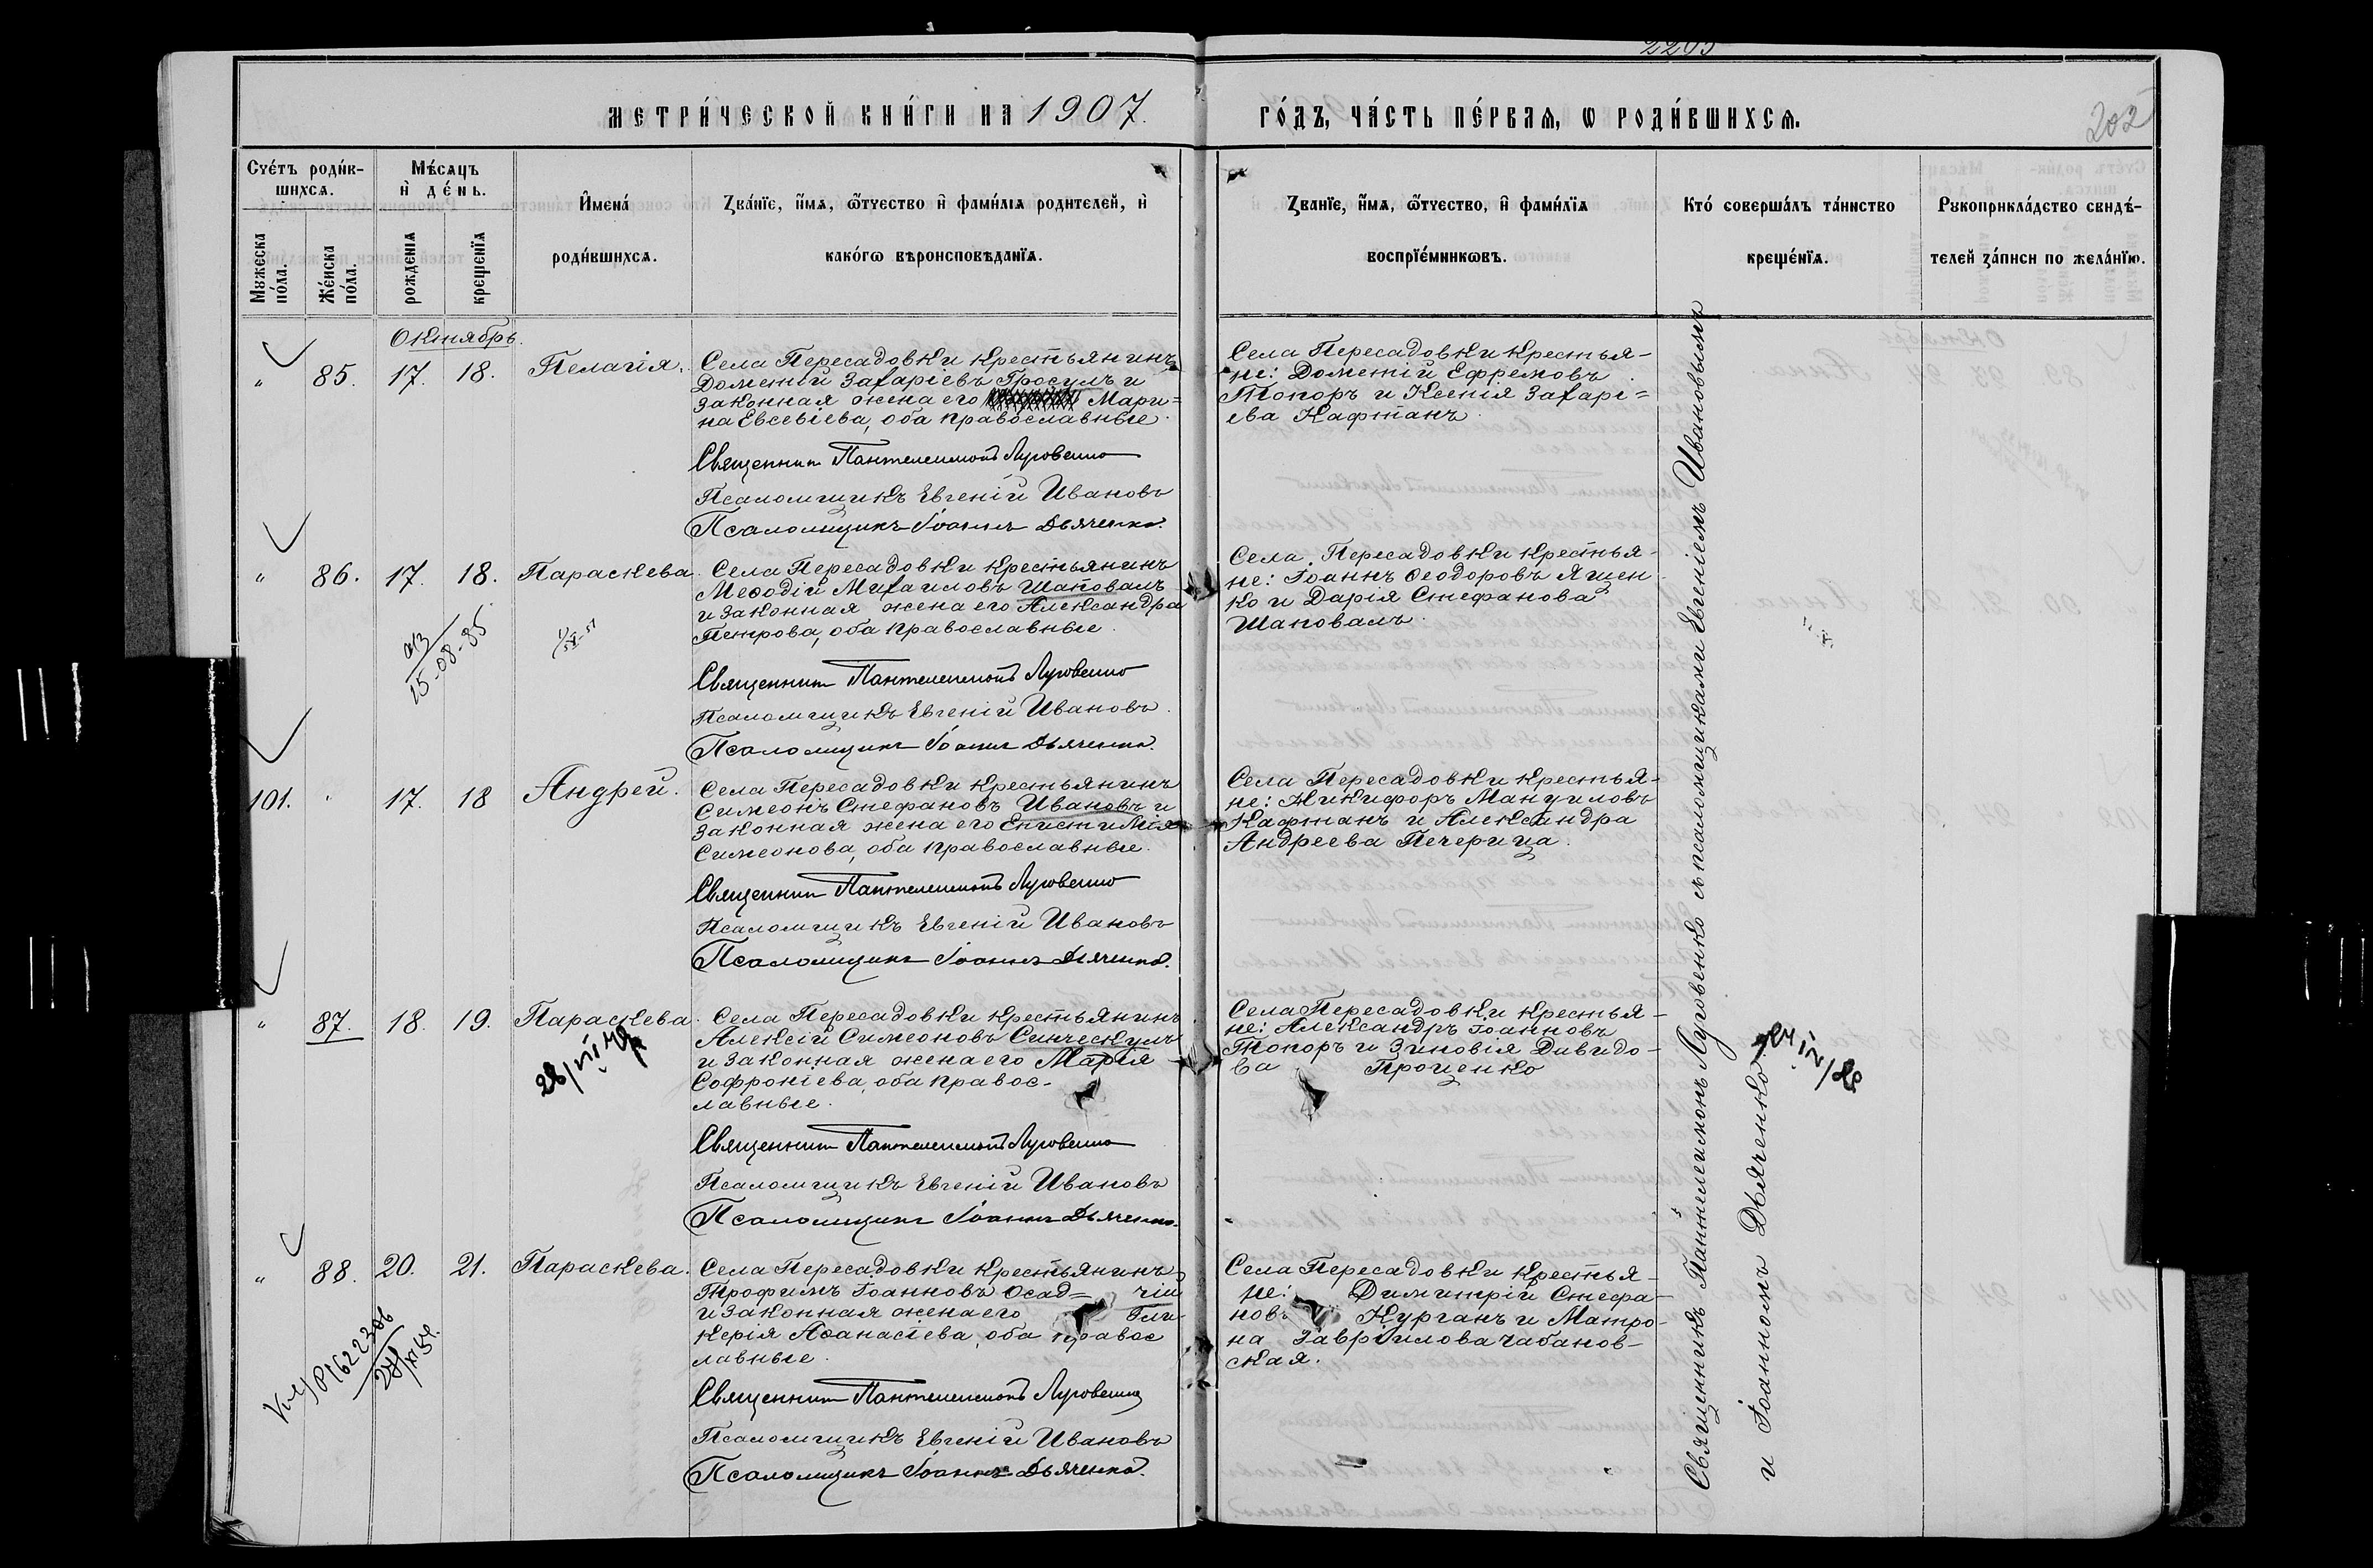 2205
МЕТРИ́ЧЕСКОЙ КНИ́ГИ НА 1907.
ГО́ДЪ, ЧА́СТЬ ПЕ́РВАѦ, Ѡ РОДИ́ВШИХСѦ.
202
Счетъ роди́в-
шихсѧ.
Мѣсѧцъ
и де́нь.
Мꙋжеска по́ла.
Же́нска по́ла.
рожденіѧ
крещеніѧ
Имена́
роди́вшихсѧ.
Зва́нїе, и҆мѧ, ѻ҆тчество и҆ фами́лїѧ родителей, и҆
како́гѡ вѣроисповѣданїѧ.
Званїе, и҆мѧ, ѻ҆тчество, и҆ фами́лїѧ
воспрїе́мникѡвъ.
Кто́ соверша́лъ та́инство
креще́нїѧ.
Рꙋкоприкла́дство свидѣ́-
телей за́писи по жела́нїю.
Октябрь.
" 85. 17. 18. Пелагія.
Села Пересадовки крестьянинъ
Дометій Захаріевъ Гросулъ и
законная жена его Мари=
на Евсевіева, оба православные.
Священник Пантелеимонъ Луговенко
Псаломщикъ Евгеній Ивановъ
Псаломщикъ Іоаннъ Дьяченко.
Села Пересадовки крестья-
не: Дометій Ефремовъ
Топоръ и Ксенія Захарі=
ева Кафтанъ
" 86. 17. 18. Параскева.
Села Пересадовки крестьянинъ
Меѳодій Михаиловъ Шаповалъ
и законная жена его Александра
Петрова, оба православные.
15-08-85
Священник Пантелеимонъ Луговенко
Псаломщикъ Евгеній Ивановъ.
Псаломщикъ Іоаннъ Дьяченко.
Села Пересадовки крестья-
не: Іоаннъ Ѳеодоровъ Ящен
ко и Дарія Стефанова
Шаповалъ.
101. " 17. 18 Андрей.
Села Пересадовки крестьянинъ
Симеонъ Стефановъ Ивановъ и
законная жена его Епистимія
Симеонова, оба православные.
Священник Пантелеимонъ Луговенко
Псаломщикъ Евгеній Ивановъ
Псаломщикъ Іоаннъ Дьяченко.
Села Пересадовки крестья-
не: Никифоръ Мануиловъ
Кафтанъ и Александра
Андреева Печерица.
" 87. 18. 19. Параскева.
Села Пересадовки крестьянинъ
Алексій Симеоновъ Синческулъ
и законная жена его Марія
Софроніева, оба правос-
лавные.
Священник Пантелеимонъ Луговенко
Псаломщикъ Евгеній Ивановъ
Псаломщикъ Іоаннъ Дьяченко.
Села Пересадовки крестья-
не: Александръ Іоанновъ
Топоръ и Зиновія Давидо-
ва Проценко
" 88. 20. 21. Параскева.
Села Пересадовки крестьянинъ
Трофимъ Іоанновъ Осад= чій
и законная жена его Гли-
керія Аѳанасіева, оба правос
лавные.
Священник Пантелеимонъ Луговенко
Псаломщикъ Евгеній Ивановъ
Псаломщикъ Іоаннъ Дьяченко.
Села Пересадовки крестья-
не: Димитрій Стефа-
новъ Курганъ и Матро-
на Гавріилова Чабанов-
ская.
Священникъ Пантелеимонъ Луговенко съ псаломщиками Евгеніемъ Ивановымъ
и Іоанномъ Дьяченко.